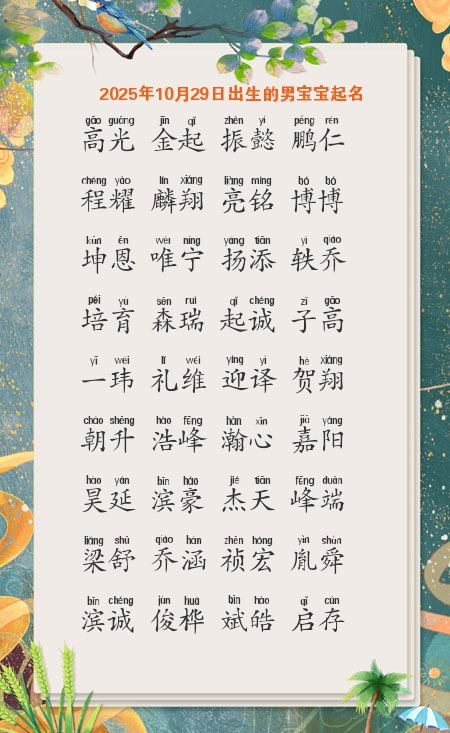 2025年10月29日出生的男宝宝起名
gāo guāng jīn qǐ zhèn yì péng rén
高光 金起 振懿 鹏仁
chéng yào lín xiáng liàng míng bó bó
程耀 麟翔 亮铭 博博
kūn ēn wéi níng yáng tiān yì qiáo
坤恩 唯宁 扬添 轶乔
péi yù sēn ruì qǐ chéng zǐ gāo
培育 森瑞 起诚 子高
yī wěi lǐ wéi yíng yì hè xiáng
一玮 礼维 迎译 贺翔
cháo shēng hào fēng hàn xīn jiā yáng
朝升 浩峰 瀚心 嘉阳
hào yán bīn háo jié tiān fēng duān
昊延 滨豪 杰天 峰端
liáng shū qiáo hán zhēn hóng yìn shùn
梁舒 乔涵 祯宏 胤舜
bīn chéng jùn huà bīn hào qǐ cún
滨诚 俊桦 斌皓 启存